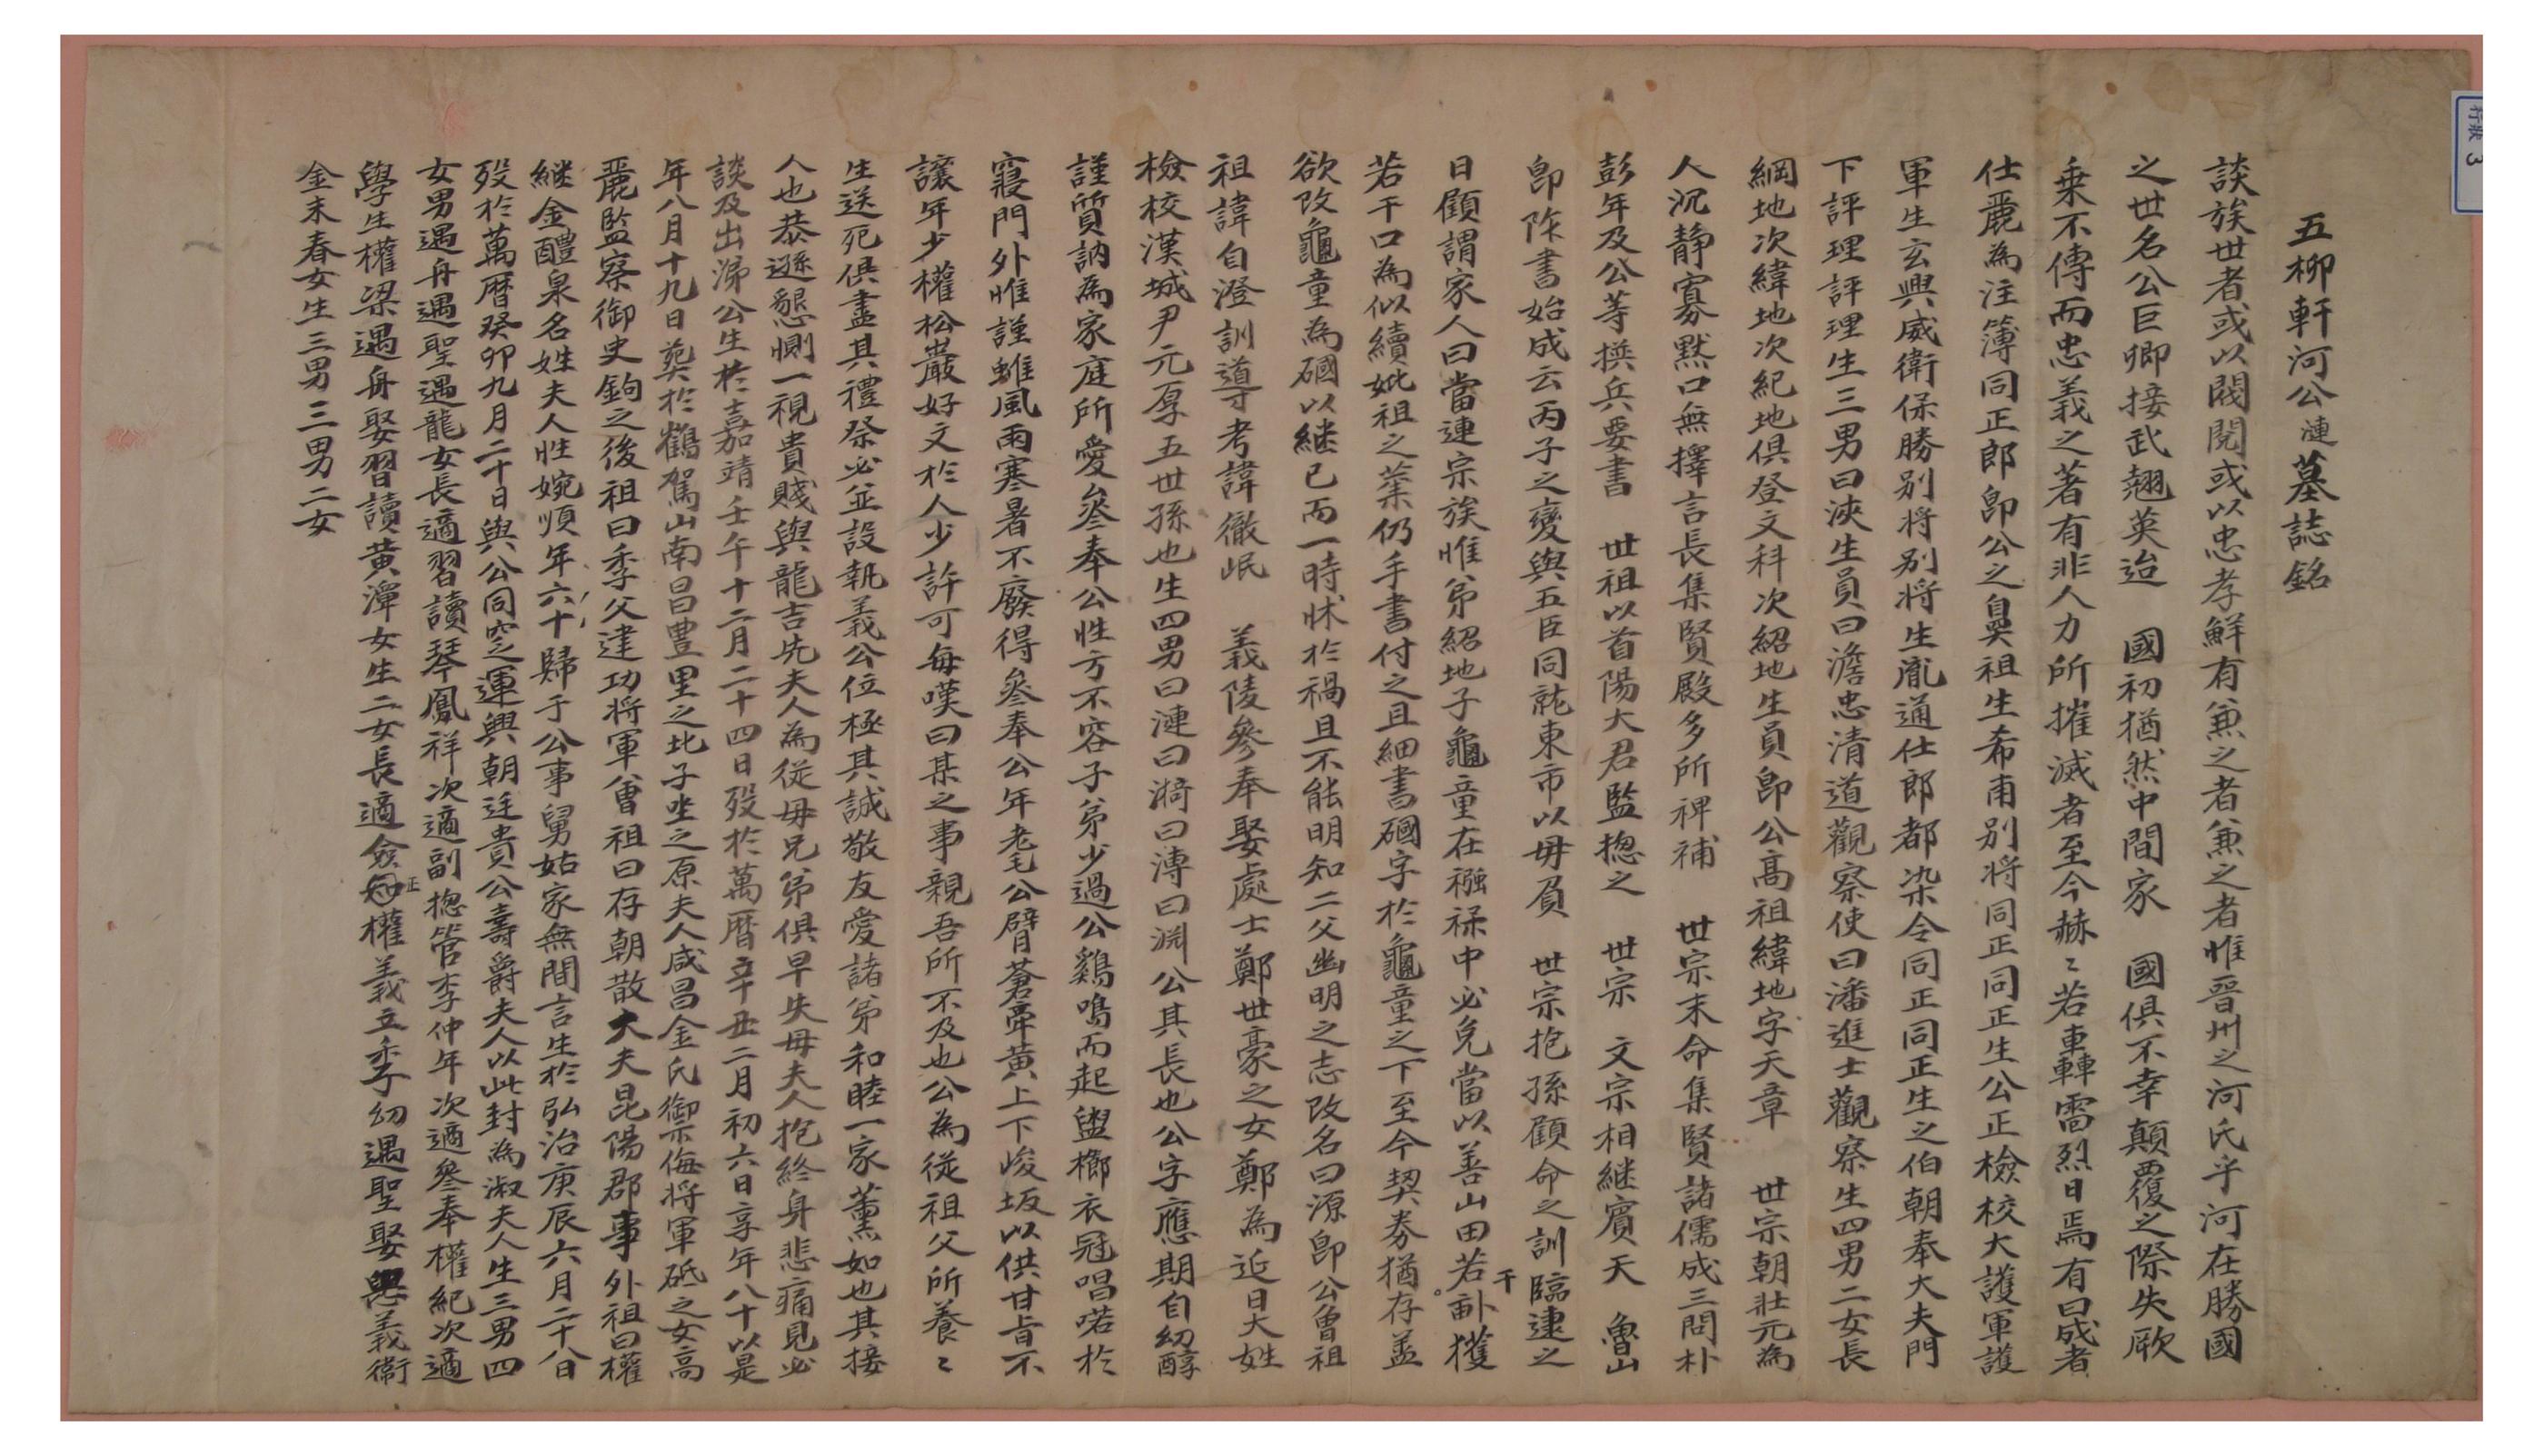 五柳軒河公漣墓誌銘
談族世者或以閥閱或以忠孝鮮有兼之者兼之者惟晉州之河氏乎河在勝國
之世名公巨卿接武翹英迨 國初猶然中間家 國俱不幸顚覆之際失厥
乗不傳而忠義之著有非人力所摧滅者至今赫〻若車轉雷烈日焉有曰成者
仕麗為注簿同正郎卽公之鼻祖生希甫別将同正同正生公正檢校大護軍護
軍生玄興威衛保勝别将别将生胤通仕郎都染令同正同正生之伯朝奉大夫門
下評理評理生三男曰浹生員曰澹忠清道觀察使曰潘進士觀察生四男二女長
綱地次緯地次紀地俱登文科次紹地生員卽公髙祖緯地字天章 世宗朝壯元為
人沉静寡黙口無擇言長集賢殿多所裨補 世宗末命集賢諸儒成三問朴
彭年及公等撰兵要書 世祖以首陽大君監揔之 世宗 文宗相継賓天 魯山
卽阼書始成云丙子之變與五臣同就東市以毋負 世宗抱孫顧命之訓臨逮之
日顧謂家人曰當連宗族惟弟紹地子龜童在襁褓中必免當以善山田若干畝獲
若干口為似續妣祖之藁仍手書付之且細書䃲字於龜童之下至今契券猶存盖
欲改龜童為䃲以継已而一時怵於禍且不能明知二父幽明之志改名曰源卽公曾祖
祖諱自澄訓導考諱徹岷 義陵參奉娶處士鄭世豪之女鄭為近日大姓
檢校漢城尹元厚五世孫也生四男曰漣曰漪曰溥曰淵公其長也公字應期自幼醇
謹質訥為家庭所愛叅奉公性方不容子弟少過公鷄鳴而起盥櫛衣冠唱喏於
寢門外惟謹雖風雨寒暑不廢得叅奉公年老乇公臂蒼牽黄上下峻坂以供甘旨不
讓年少權松巖好文於人少許可每嘆曰某之事親吾所不及也公為從祖父所養〻
生送死俱盡其禮祭必並設執義公位極其誠敬友愛諸弟和睦一家薰如也其接
人也恭遜懇惻一視貴賤與龍吉先夫人為從毋兄弟俱早失毋夫人抱終身悲痛見必
談及出涕公生於嘉靖壬午十二月二十四日歿於萬曆辛丑二月初六日享年八十以是
年八月十九日葬於鶴駕山南昌豊里之北子坐之原夫人咸昌金氏禦侮将軍砥之女高
麗監察御史鉤之後祖曰季父建功将軍曾祖曰存朝散大夫昆陽郡事外祖曰權
継金醴泉名姓夫人性婉順年六十歸于公事舅姑家無間言生於弘治庚辰六月二十八日
歿於萬曆癸卯九月二十日與公同窆運興朝廷貴公壽爵夫人以此封為淑夫人生三男四
女男遇舟遇聖遇龍女長適習讀琴鳳祥次適副揔管李仲年次適叅奉權紀次適
學生權㴍遇舟娶習讀黄潭女生二女長適僉知正權義立季幼遇聖娶忠義衛
金末春女生三男三男二女